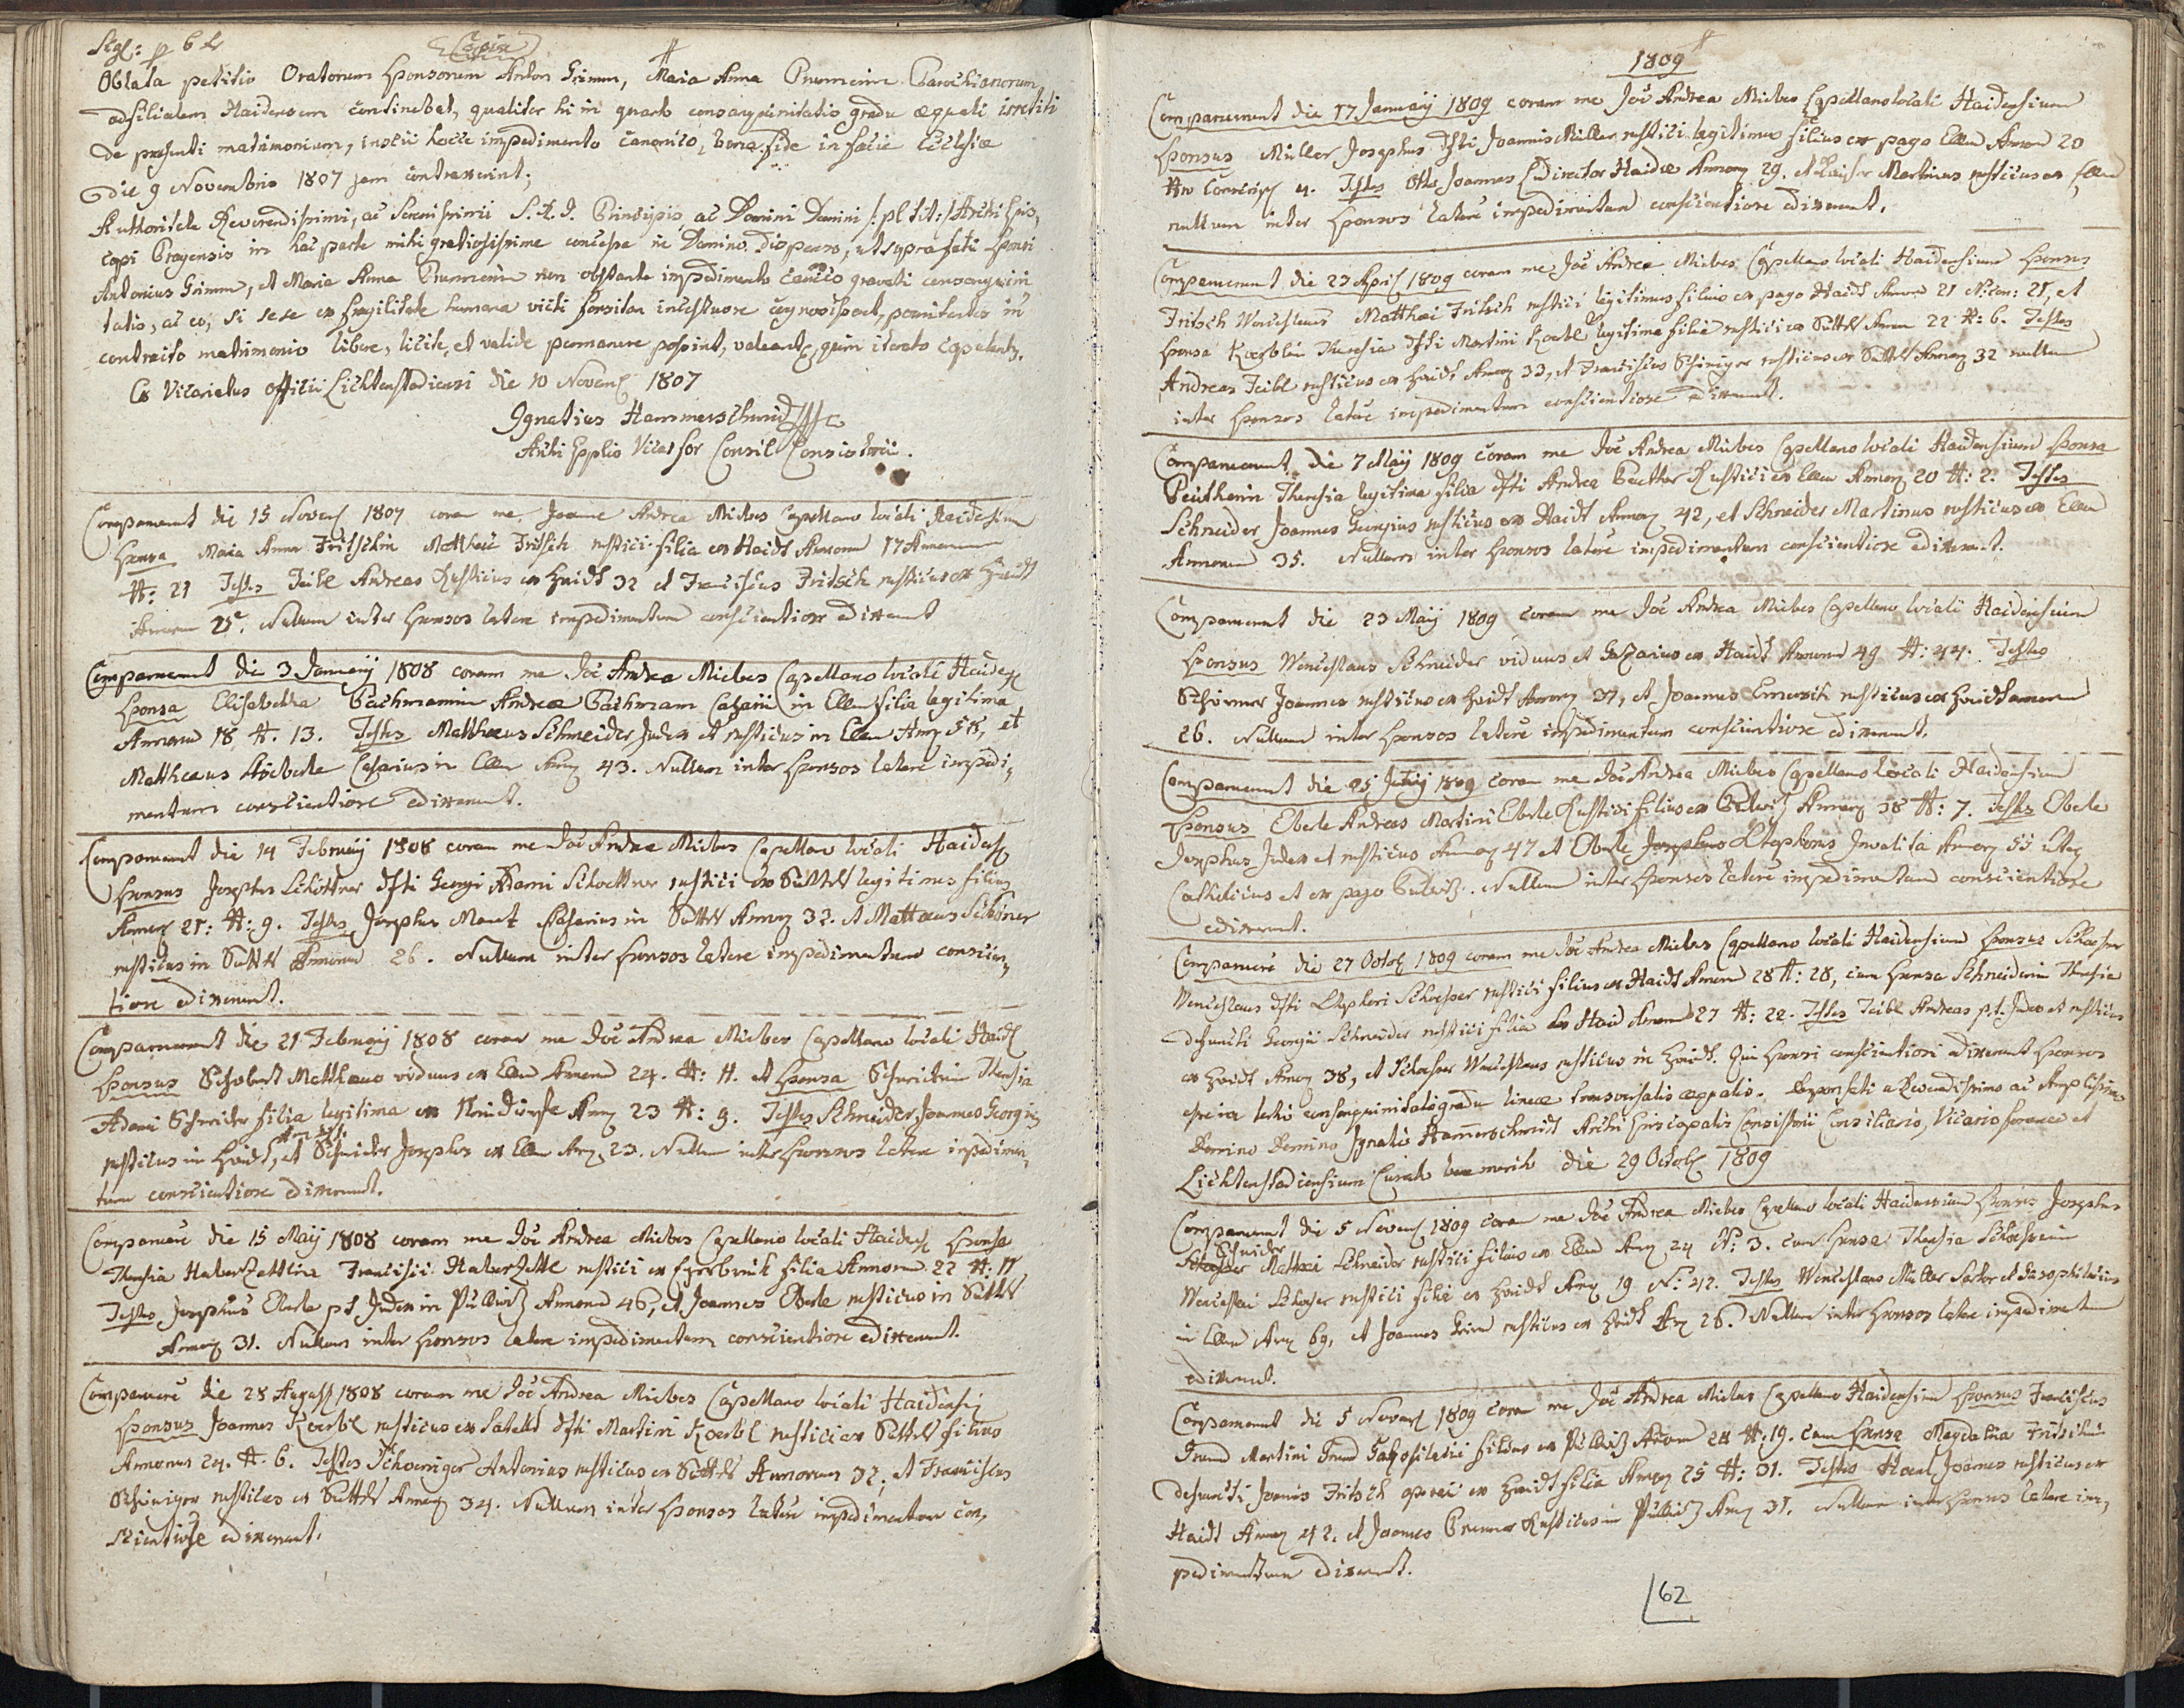 Copia
Oblata petitio Oratorum Sponsorum Anton Grimm, Maria Anna Parochianorum
ad filialem Haidensem continebat, qualiter hi in quarto consanguinitatis gradu aequali irretiti
de praesenti matrimonium, inscii hocce impedimento Canonico, bona fide in facie Ecclesiae
die 9 Novembris 1807 jam contraxerint;
Authoritate Reverendissimi, ac Serenissimi S. R. I. Principis ac Domini Domini /: pl tit :/ Archi Epis,
copi Pragensis in hac parte mihi gratiosissime concessa in Domino dispenso, ut suprafati Sponsi
Antonius Grimm, et Maria Anna non obstante impedimento canico gravati consanguini
tatis, ac eo, si sese ex fragilitate humana victi forsitan incestuose cognovissent, poenitentes in
contracto matrimonio libere, licite, et valide permanere possint, valeantq, quin iterato copulentr.
Ex Vicariatus officii Lichtenstadiensi die 10 Novemb 1807
Ignatius Hammerschmid
Archi Epplis Vicar for Consil Consistorii.
Comparuerunt die 15 Novemb 1807 coram me Joanne Andrea Miebes Capellano locali Haidensium
Sponsa Maria Anna Fritschin Matthaei Fritsch rustici filia ex Haidt Annorum 17
N: 21 Testes Teibl Andreas Rusticus ex Haidt 32 et Franciscus Fritsch rusticus ex Haidt
Annorum 25. Nullum inter Sponsos latere impedimentum conscientiose edixerunt
Comparuerunt die 3 Januarij 1808 coram me Joe Andrea Miebes Capellano locali Haidens
Sponsa Elisabetha Bachmannin Andreae Bachmann Casarii in Ellm filia legitima
Annorum 18 N. 13. Testes Matthaeus Schneider Judex et rusticus in Ellm Anno 58, et
Matthaeus Casarius in Ellm Anno 43. Nullum inter Sponsos latere impedi,
mentum conscientiose edixerunt.
Comparuerunt die 14 Februarij 1808 coram me Joe Andrea Miebes Capellano locali Haidens
Sponsus Josephus Schöttner dfti Georgi Adami Schoettner rustici ex Sattel legitimus filius
Annor 21: N: 9. Testes Josephus Casarius in Sattel Annor 32. et Mattaeus Schöner
rusticus in Sattel Annorum 26. Nullum inter Sponsos latere impedimentum conscien,
tiose edixerunt.
Comparuerunt die 21 Februarij 1808 coram me Joe Andrea Miebes Capellano locali Haids
Sponsus Schobert Matthaeus viduus ex Ellm Annorum 24. N: 11. et Sponsa Schneiderin Theresia
Adami Schneider filia legitima ex Annor 23 N: 9. Testes Schneider Joannes Georgius
rusticus in Haidt, et Schneider Josephus ex Ellm Annor 23. Nullum inter Sponsos latere impedimen,
tum conscientiose edixerunt.
Comparuere die 15 Maij 1808 coram me Joe Andrea Miebes Capellano locali Haidens Sponsa
Theresia Haberzettlin Francisci Haberzettl rustici ex filia Annorum 22 N: 17
Testes Josephus Eberle p t Judex in Pullwitz Annorum 46, et Joannes Eberle rusticus in Sattel
Annor 31. Nullum inter Sponsos latere impedimentum conscientiose edixerunt.
Comparuere die 28 August 1808 coram me Joe Andrea Miebes Capellano locali Haidensi
Sponsus Joannes Koerbl rusticus ex Sattel dfti Martini Koerbl rustici ex Sattel filius
Annorum 24. N. 6. Testes Schoeniger Antonius rusticus ex Sattel Annorum 32; et Franciscus
Schöniger rusticus ex Sattel Annor 34. Nullum inter Sponsos latere impedimentum con,
scientiose edixerunt.
1809
Comparuerunt die 17 Januarij 1809 coram me Joe Andrea Miebes Capellano locali Haidensium
Sponsus Müller Josephus dfti Joannis Müller rustici legitimus filius ex pago Ellm Annorum 20
Nro Conscrip 4. Testes Otto Joannes Ludirector Haidae Annor 29. et Martinus rusticus ex Ellm
nullum inter Sponsos latere impedimentum conscientiose edixerunt.
Comparuerunt die 23 April 1809 coram me Joe Andrea Miebes Capellano locali Haidensium Sponsus
Fritsch Wenceslaus Matthaei Fritsch rustici legitimus filius ex pago Haidt Annorum 21 N: con: 21, et
Sponsa Koerblin Theresia dfti Martini Koerbl legitima filia rustici ex Sattel Annor 22 N: 6. Testes
Andreas Teibl rusticus ex Haidt Annor 33, et Franciscus Schöniger rusticus ex Sattel Annor 32 nullum
inter Sponsos latere impedimentum conscientiose edixerunt.
Comparuerunt die 7 Maij 1809 coram me Joe Andrea Miebes Capellano locali Haidensium Sponsa
Beutherin Theresia legitima filia dfti Andreae Beuther Rustici ex Ellm Annor 20 N: 2. Testes
Schneider Joannes Georgius rusticus ex Haidt Annor 42, et Schneider Martinus rusticus ex Ellm
Annorum 35. Nullum inter Sponsos latere impedimentum conscientiose edixerunt.
Comparuerunt die 23 Maij 1809 coram me Joe Andrea Miebes Capellano locali Haidensium
Sponsus Wenceslaus Schneider viduus et Casarius ex Haidt Annorum 49 N: 44. Testes
Schirmer Joannes rusticus ex Haidt Annor 37, et Joannes rusticus ex Haidt annorum
26. Nullum inter Sponsos latere impedimentum conscientiose edixerunt.
Comparuerunt die 25 1809 coram me Joe Andrea Miebes Capellano locali Haidensium
Sponsus Eberle Andreas Martini Eberle Rustici filius ex Pulwitz Annor 38 N: 7. Testes Eberle
Josephus Judex et rusticus Annor 47 et Eberle Josephus Stephans Invalita Annor 55 uterq
Catholicus et ex pago Pulwitz. Nullum inter Sponsos latere impedimentum conscientiose
edixerunt.
Comparuere die 27 Octob 1809 coram me Joe Andrea Miebes Capellano locali Haidensium Sponsus
Wenceslaus dfti Stephani rustici filius ex Haidt Annorum 28 N: 28, cum Sponsa Schneiderin Theresia
defuncti Georgii Schneider rustici filia ex Haid Annorum 27 N: 22. Testes Teibl Andreas p.t. Judex et rusticus
ex Haidt Annor 38, et Wenceslaus rusticus in Haidt. Qui Sponsi conscientiosi edixerunt Sponsos
tertio consanguinitatis gradu lineae transversalis aequalis. Dispensati a Reverendissimo ac Amplissimo
Domino Domino Ignatio Hammerschmidt Archi Episcopalis Consistorii Consiliario, Vicario foraneo et
Lichtenstadiensium Curato bene merito die 29 Octob 1809
Comparuerunt die 5 Novemb 1809 coram me Joe Andrea Miebes Capellano locali Haidensium Sponsus Josephus
Schneider Matthaei Schneider rustici filius ex Ellm Annor 24 N: 3. cum Sponsa Theresia
Wenceslai rustici filia ex Haidt Annor 19 N: 42. Testes Wenceslaus Müller Sartor et
in Ellm Annor 69, et Joannes rusticus ex Haidt Ann 26. Nullum inter Sponsos latere impedimentum
edixerunt.
Comparuerunt die 5 Novemb 1809 coram me Joe Andrea Miebes Capellano Haidensium Sponsus Franciscus
Martini filius ex Pullwitz Annorum 24 N: 19. cum Sponsa Magdalena Fritschin
defuncti Joannis Fritsch operarii ex Haidt filia Annor 25 N: 31. Testes Joannes rusticus ex
Haidt Annor 42. et Joannes Rusticus in Pullwitz Annor 31. Nullum inter Sponsos latere im,
pedimentum edixerunt.
62